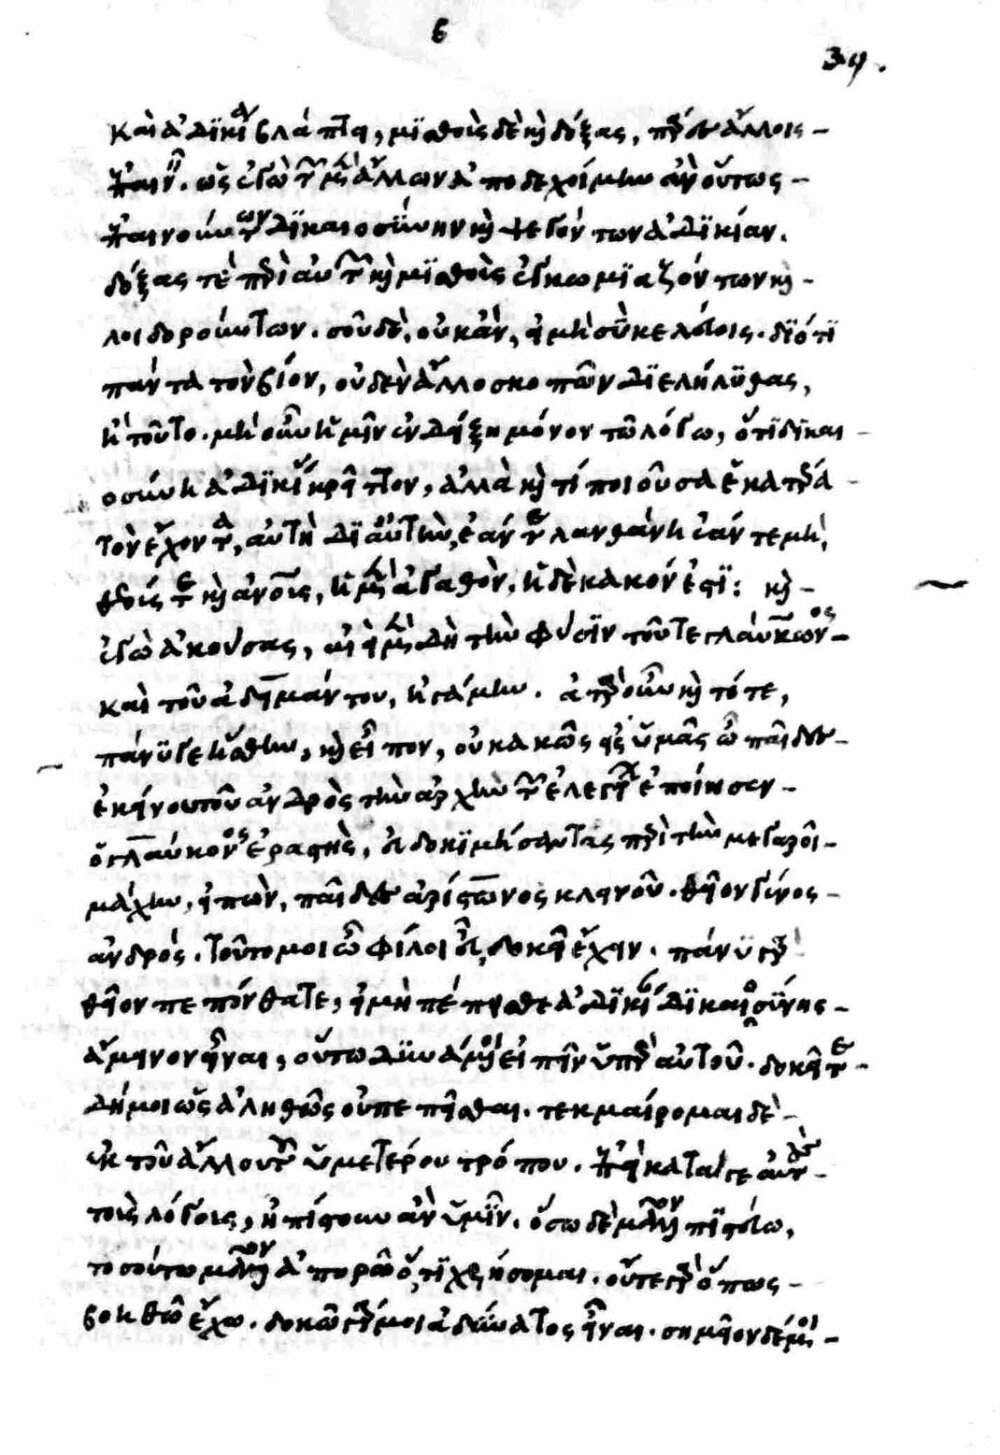 καὶ ἀδϊκία βλάπτει, μϊσθοὺς δὲ καὶ δόξας, πάρες ἄλλοις -
ἐπαινεῖν. ὡς ἐγὼ τῶν μὲν ἄλλων ἀποδεχοίμην ἂν οὕτως -
ἐπαινούντων δϊκαιοσύνην καὶ ψεγόντων ἀδϊκίαν.
δόξας τὲ περὶ αὐτῶν καὶ μϊσθοὺς ἐγκωμϊαζόντων καὶ -
λοιδορούντων. σοῦ δὲ, οὐκ ἂν, εἰ μὴ σὺ κελεύοις. δϊότϊ
πάντα τὸν βίον, οὐδὲν ἄλλο σκοπῶν δϊελήλϋθας,
ἢ τοῦτο. μὴ οὖν ἡμῖν ἐνδείξη μόνον τῶ λόγω, ὅτϊ δϊκαι -
οσύνη ἀδϊκίας κρεῖττον, ἀλλὰ καὶ τί ποιοῦσα ἑκατέρα -
τὸν ἔχοντα, αὐτὴ δϊ αὑτὴν, ἐάν τε λανθάνη ἐάν τε μὴ,
θεούς τε καὶ ἀνους, ἡ μὲν ἀγαθὸν, ἡ δὲ κακόν ἐστϊ: καὶ -
ἐγὼ ἀκούσας, ἀεὶ μὲν δὴ τὴν φύσϊν τοῦ τε γλαύκωνος -
καὶ τοῦ ἀδημάντου, ἠγάμην. ἀτὰρ οὖν καὶ τότε,
πάνϋ γε ἥσθην, καὶ εἶπον, οὐ κακῶς εἰς ὑμᾶς ὦ παῖδες -
ἐκείνου τοῦ ἀνδρὸς τὴν ἀρχὴν τῶν ἐλεγείων ἐποίησεν -
ὁ γλαύκονος ἐραστὴς, εὐδοκϊμήσαντας περὶ τὴν μεγαροῖ -
μάχην, εἰπὼν, παῖδες ἀρίστωνος κλεινοῦ. θεῖον γένος -
ἀνδρός. τοῦτο μοι ὦ φίλοι εὖ δοκεῖ ἔχειν. πάνϋ γὰρ
θεῖον πεπόνθατε, εἰ μὴ πέπεισθε ἀδϊκίαν δϊκαιοσύνης -
ἄμεινον εἶναι, οὕτω δϋνάμενοι εἰπεῖν ὑπὲρ αὐτοῦ. δοκεῖτε -
δή μοι ὡς ἀληθῶς οὐ πεπεῖσθαι. τεκμαίρομαι δὲ -
ἐκ τοῦ ἄλλου τοῦ ὑμετέρου τρόπου. ἐπεὶ κατά γε αὐτοὺς -
τοὺς λόγους, ἠπίστουν ἂν ὑμῖν. ὅσω δὲ μᾶλλον πϊστεύω,
τοσούτω μᾶλλον ἀπορῶ ὅ,τϊ χρήσομαι. οὔτε γὰρ ὅπως -
βοηθῶ ἔχω. δοκῶ γάρ μοι ἀδύνατος εἶναι. σημεῖον δέ μοι -